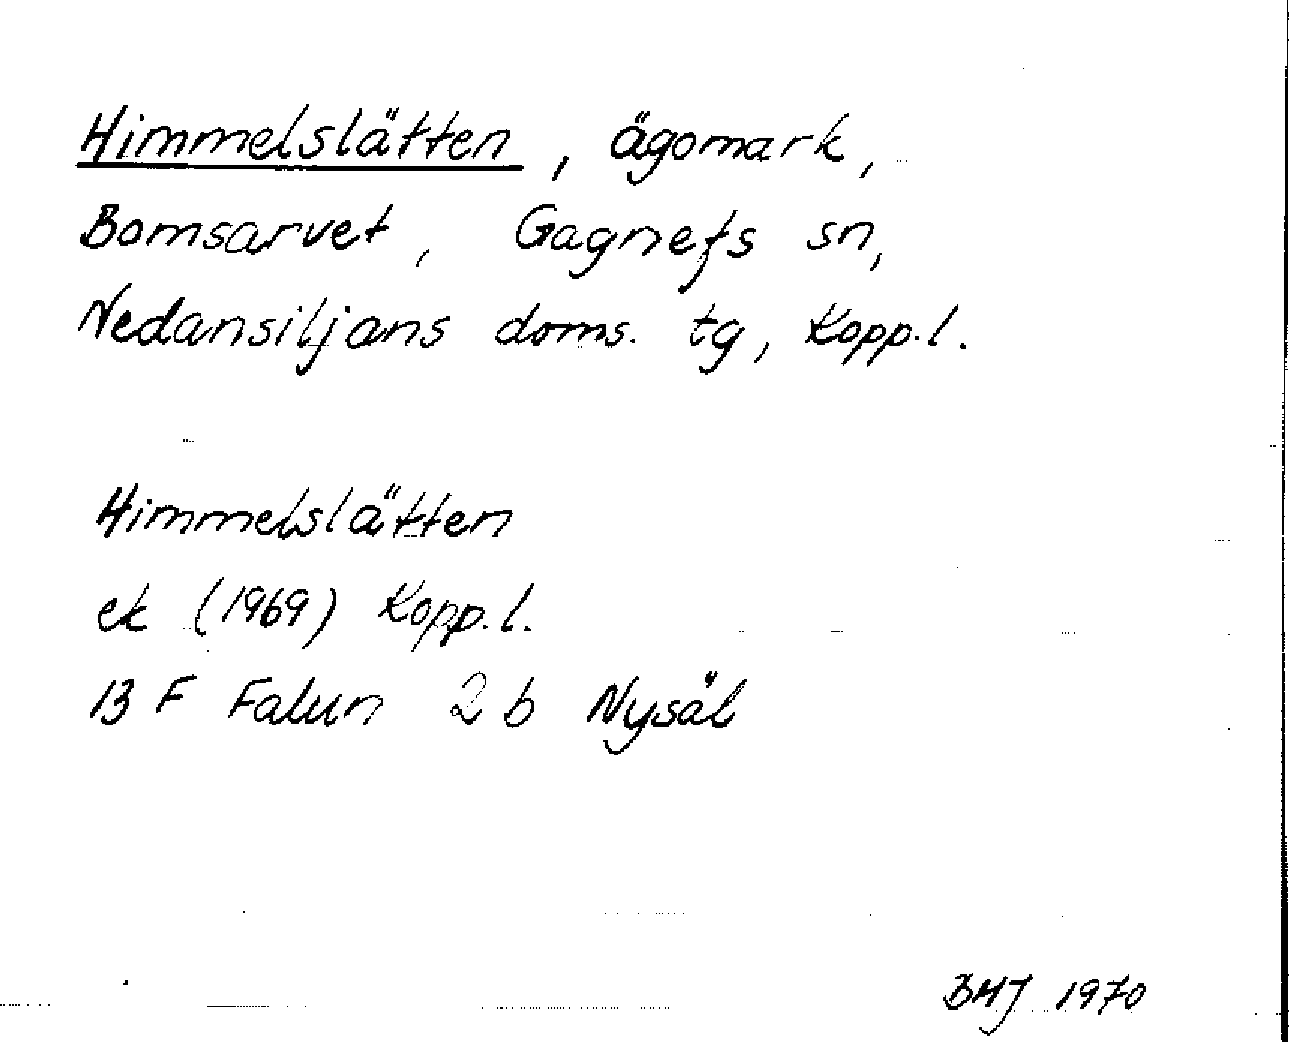 Himmelslätten, ägomark,
Bomsarvet, Gagnefs sn,
Nedansiljans doms. tg, Kopp.l.
Himmelslätten
ek (1969) Kopp.l.
13 F Falun 2 b Nysäl
BMJ 1970